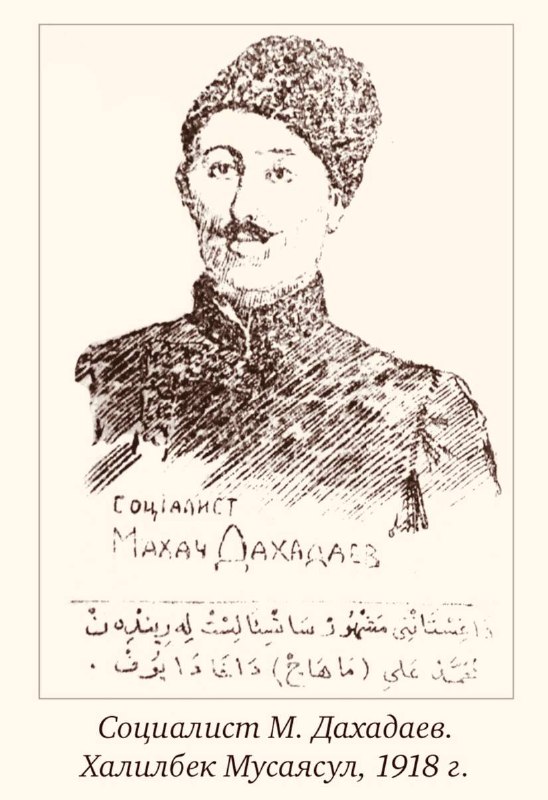 СОЦІАЛИСТ
МАХАЧ ДАХАДАЕВ
داغستاننڭ مشهور ساتسيالیست له رينده ن
محمد علي (ماهاچ) داخادايوف .
Социалист М. Дахадаев.
Халилбек Мусаясул, 1918 г.